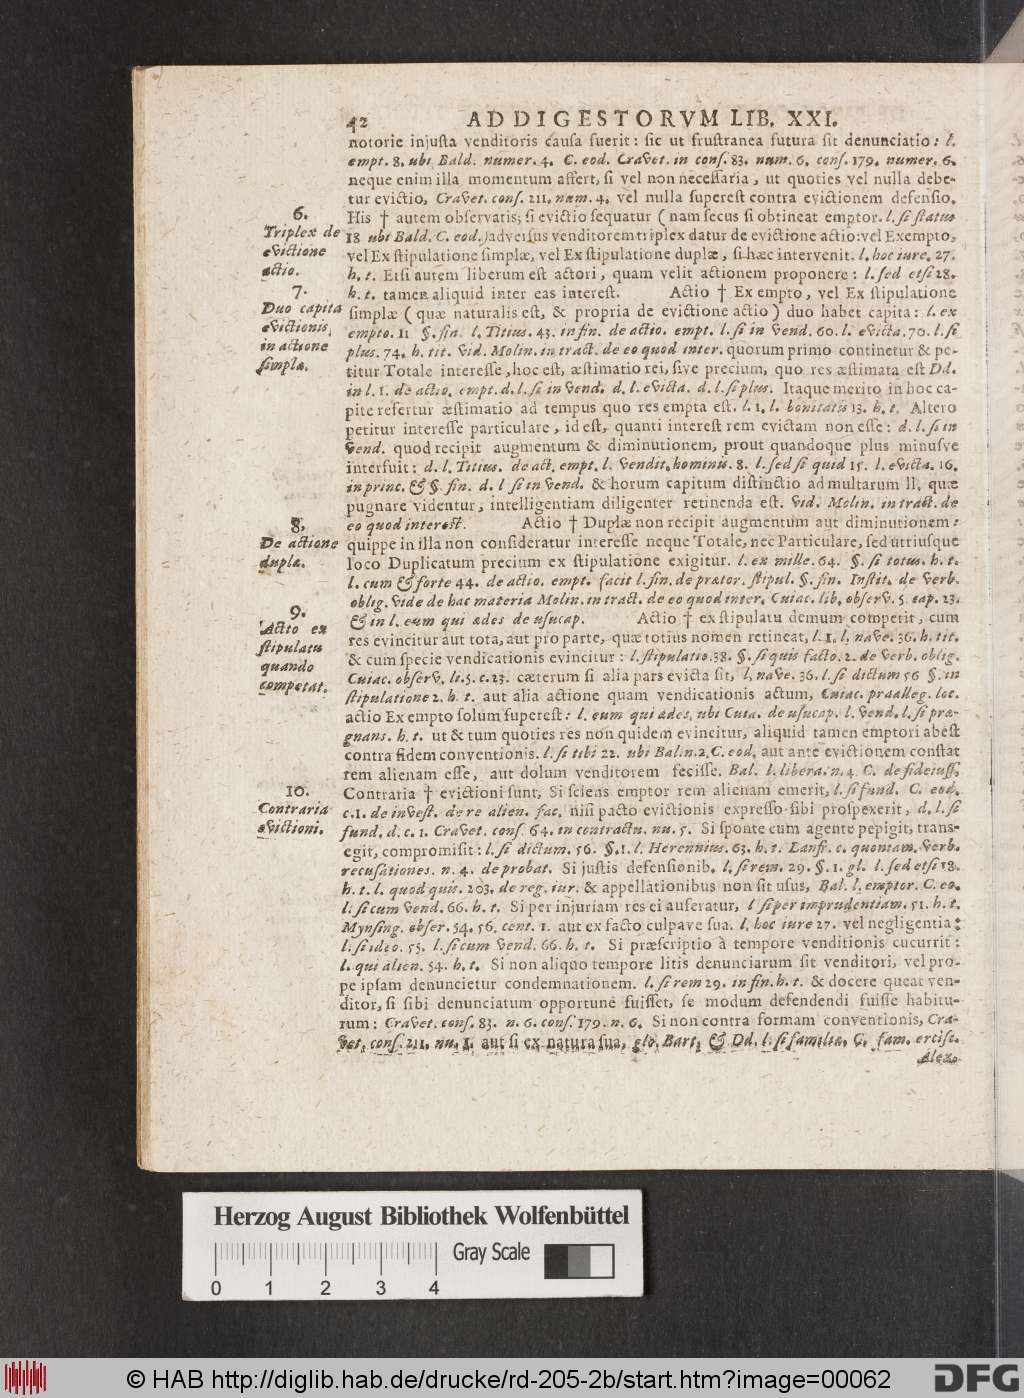 42 AD DIGESTORVM LIB. XXI.
notorie injusta venditoris causa fuerit: sic ut frustranea futura sit denunciatio: l.
empt. 8. ubi Bald. numer. 4. C. eod. Cravet. in cons. 83. num. 6. cons. 179. numer. 6.
neque enim illa momentum affert, si vel non necessaria, ut quoties vel nulla debe-
tur evictio, Cravet. cons. 211. num. 4. vel nulla superest contra evictionem defensio.
6.
Triplex de
evictione
actio.
His † autem observatis; si evictio sequatur (nam secus si obtineat emptor. l. si status
18 ubi Bald. C. eod.) adversus venditorem triplex datur de evictione actio: vel Ex empto,
vel Ex stipulatione simplæ, vel Ex stipulatione duplæ, si hæc intervenit. l. hoc jure. 27.
h. t. Etsi autem liberum est actori, quam velit actionem proponere: l. sed etsi 28.
7.
Duo capita
evictionis,
in actione
simplæ.
h. t. tamen aliquid inter eas interest. Actio † Ex empto, vel Ex stipulatione
simplæ (quæ naturalis est, & propria de evictione actio) duo habet capita: l. ex
empto. 11 §. sia. l. Titius. 43. in fin. de actio. empt. l. si in vend. 60. l. evicta. 70. l. si
plus. 74. h. tit. vid. Molin. in tract. de eo quod inter. quorum primo continetur & pe-
titur Totale interesse, hoc est, æstimatio rei, sive precium, quo res æstimata est Dd.
in l. 1. de actio. empt. d. l. si in vend. d. l. evicta. d. l. si plus. Itaque merito in hoc ca-
pite refertur æstimatio ad tempus quo res empta est. l. 1. l. bonitatis 13. h. t. Altero
petitur interesse particulare, id est, quanti interest rem evictam non esse: d. l. si in
vend. quod recipit augmentum & diminutionem, prout quandoque plus minusve
interfuit: d. l. Titius. de act. empt. l. vendit. hominis. 8. l. sed si quid 15. l. evicta. 16.
in princ. & §. fin. d. l si in vend. & horum capitum distinctio ad multarum ll. quæ
pugnare videntur, intelligentiam diligenter retinenda est. vid. Molin. in tract. de
8.
De actione
duplæ.
eo quod interest. Actio † Duplæ non recipit augmentum aut diminutionem:
quippe in illa non consideratur interesse neque Totale, nec Particulare, sed utriusque
loco Duplicatum precium ex stipulatione exigitur. l. ex mille. 64. §. si totus. h. t.
l. cum & forte 44. de actio. empt. facit l. fin. de prætor. stipul. §. fin. Instit. de verb.
oblig. vide de hac materia Molin. in tract. de eo quod inter. Cuiac. lib. observ. 5. cap. 23.
9.
Actio ex
stipulatu
quando
competat.
& in l. eum qui ædes de usucap. Actio † ex stipulatu demum competit, cum
res evincitur aut tota, aut pro parte, quæ totius nomen retineat, l. 1. l. nave. 36. h. tit.
& cum specie vendicationis evincitur: l. stipulatio. 38. §. si quis facto. 2. de verb. oblig.
Cuiac. observ. li. 5. c. 23. cæterum si alia pars evicta sit, l, nave. 36. l. si dictum 56 §. in
stipulatione 2. h. t. aut alia actione quam vendicationis actum, Cuiac. præalleg. loc.
actio Ex empto solum superest: l. eum qui ædes, ubi Cuia. de usucap. l. vend. l. si præ-
gnans. h. t. ut & tum quoties res non quidem evincitur, aliquid tamen emptori abest
contra fidem conventionis. l. si tibi 22. ubi Bal. n. 2. C. eod. aut ante evictionem constat
rem alienam esse, aut dolum venditorem fecisse. Bal. l. libera. n. 4 C. de fideiuss.
10.
Contraria
evictioni.
Contraria † evictioni sunt, Si sciens emptor rem alienam emerit, l. si fund. C. eod.
c. 1. de invest. de re alien. fac. nisi pacto evictionis expresso sibi prospexerit, d. l. si
fund. d. c. 1. Cravet. cons. 64. in contractu. nu. 5. Si sponte cum agente pepigit, trans-
egit, compromisit: l. si dictum. 56. §. 1. l. Herennius. 63. h. t. Lanf. c. quoniam. verb.
recusationes. n. 4. de probat. Si justis defensionib. l. si rem. 29. §. 1. gl. l. sed etsi 18.
h. t. l. quod quis. 203. de reg. iur. & appellationibus non sit usus, Bal. l. emptor. C. eo.
l. si cum vend. 66. h. t. Si per injuriam res ei auferatur, l si per imprudentiam. 51. h. t.
Mynsing. obser. 54. 56. cent. 1. aut ex facto culpave sua. l. hoc iure 27. vel negligentia:
l. si ideo. 55. l. si cum vend. 66. h. t. Si præscriptio à tempore venditionis cucurrit:
l. qui alien. 54. h. t. Si non aliquo tempore litis denunciarum sit venditori, vel pro-
pe ipsam denuncietur condemnationem. l. si rem 29. in fin. h. t. & docere queat ven-
ditor, si sibi denunciatum opportunè fuisset, se modum defendendi fuisse habitu-
rum: Cravet. cons. 83. n. 6. cons. 179. n. 6. Si non contra formam conventionis, Cra-
vet. cons. 211. nu. 1. aut si ex natura sua, glo. Bart. & Dd. l. si familiæ. C. fam. ercisc.
Alex.
Herzog August Bibliothek Wolfenbüttel
Gray Scale
0 1 2 3 4
© HAB http://diglib.hab.de/drucke/rd-205-2b/start.htm?image=00062
DFG